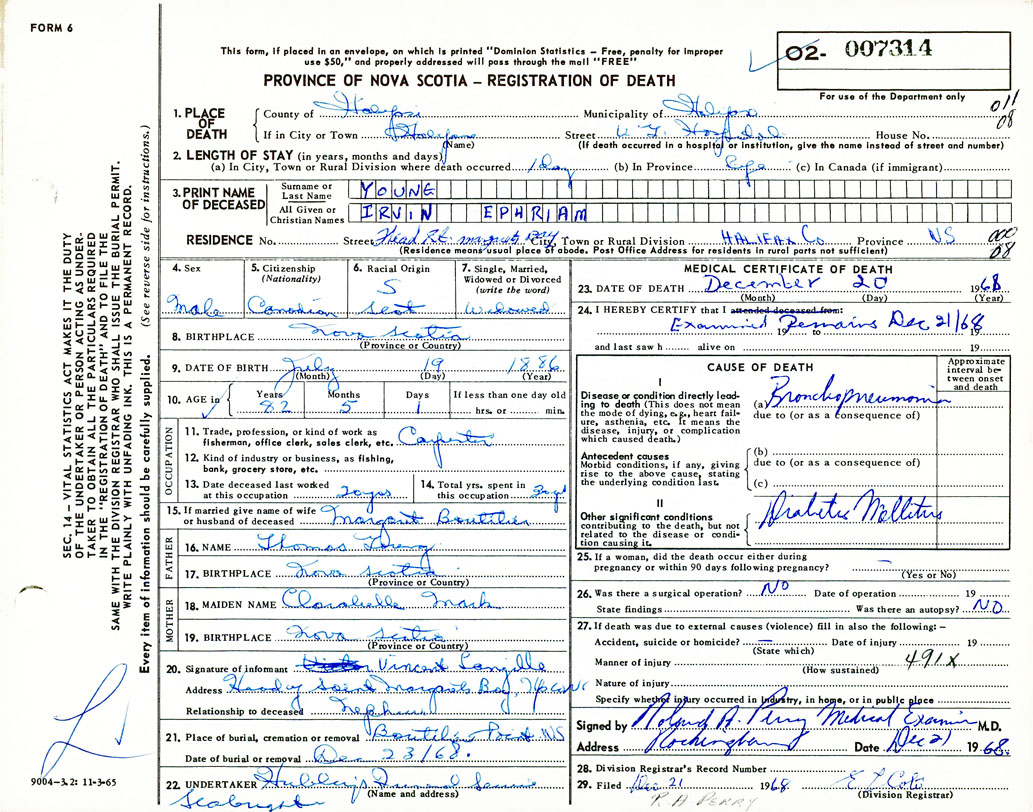 FORM 6
This form, if placed in an envelope, on which is printed "Dominion Statistics – Free, penalty for improper
use $50," and properly addressed will pass through the mail "FREE"
02- 007314
For use of the Department only
PROVINCE OF NOVA SCOTIA – REGISTRATION OF DEATH
011
08
1. PLACE OF DEATH
County of Halifax Municipality of Halifax
If in City or Town Halifax Street V. G. Hospital House No.
(Name) (If death occurred in a hospital or institution, give the name instead of street and number)
2. LENGTH OF STAY (in years, months and days)
(a) In City, Town or Rural Division where death occurred 1 day (b) In Province Life (c) In Canada (if immigrant)
3. PRINT NAME OF DECEASED
Surname or Last Name YOUNG
All Given or Christian Names IRVIN EPHRIAM
RESIDENCE No. Street Head St. Margrets Bay City, Town or Rural Division HALIFAX Co. Province NS
000
08
(Residence means usual place of abode. Post Office Address for residents in rural parts not sufficient)
4. Sex
Male
5. Citizenship
(Nationality)
Canadian
6. Racial Origin
S
Scot
7. Single, Married, Widowed or Divorced
(write the word)
Widowed
8. BIRTHPLACE Nova Scotia
(Province or Country)
9. DATE OF BIRTH July 19 1886
(Month) (Day) (Year)
10. AGE in Years Months Days If less than one day old
82 5 1 hrs. or min.
OCCUPATION
11. Trade, profession, or kind of work as
fisherman, office clerk, sales clerk, etc. Carpenter
12. Kind of industry or business, as fishing,
bank, grocery store, etc.
13. Date deceased last worked
at this occupation 20 yrs
14. Total yrs. spent in
this occupation
15. If married give name of wife
or husband of deceased Margaret Boutilier
FATHER
16. NAME Thomas Young
17. BIRTHPLACE Nova Scotia
(Province or Country)
MOTHER
18. MAIDEN NAME
19. BIRTHPLACE Nova Scotia
(Province or Country)
20. Signature of informant Vincent Langille
Address Head of Saint Margrets Bay
Relationship to deceased Nephew
21. Place of burial, cremation or removal Boutiliers Point NS
Date of burial or removal Dec 23/68.
22. UNDERTAKER Funeral
(Name and address)
Seabright
MEDICAL CERTIFICATE OF DEATH
23. DATE OF DEATH December 20 1968
(Month) (Day) (Year)
24. I HEREBY CERTIFY that I attended deceased from:
Examined Remains Dec 21/68
19 to 19
and last saw h alive on 19
CAUSE OF DEATH
Approximate interval between onset and death
I
Disease or condition directly leading to death (This does not mean
the mode of dying, e.g., heart failure, asthenia, etc. It means the
disease, injury, or complication
which caused death.)
(a) Bronchopneumonia
due to (or as a consequence of)
Antecedent causes
Morbid conditions, if any, giving
rise to the above cause, stating
the underlying condition last.
(b)
due to (or as a consequence of)
(c)
II
Other significant conditions
contributing to the death, but not
related to the disease or condition causing it.
Diabetes Mellitus
25. If a woman, did the death occur either during
pregnancy or within 90 days following pregnancy? –
(Yes or No)
26. Was there a surgical operation? NO Date of operation 19
State findings Was there an autopsy? NO
27. If death was due to external causes (violence) fill in also the following: –
Accident, suicide or homicide? – Date of injury 19
(State which)
Manner of injury 491X
(How sustained)
Nature of injury
Specify whether injury occurred in industry, in home, or in public place
Signed by Roland A. Perry Medical Examiner M.D.
Address Rockingham Date Dec 21 1968
28. Division Registrar's Record Number
29. Filed Dec 21 1968
(Division Registrar)
R A PERRY
SEC. 14 – VITAL STATISTICS ACT MAKES IT THE DUTY
OF THE UNDERTAKER OR PERSON ACTING AS UNDERTAKER TO OBTAIN ALL THE PARTICULARS REQUIRED
IN THE "REGISTRATION OF DEATH" AND TO FILE THE
SAME WITH THE DIVISION REGISTRAR WHO SHALL ISSUE THE BURIAL PERMIT.
WRITE PLAINLY WITH UNFADING INK. THIS IS A PERMANENT RECORD.
Every item of information should be carefully supplied. (See reverse side for instructions.)
9004-3.2: 11-3-65